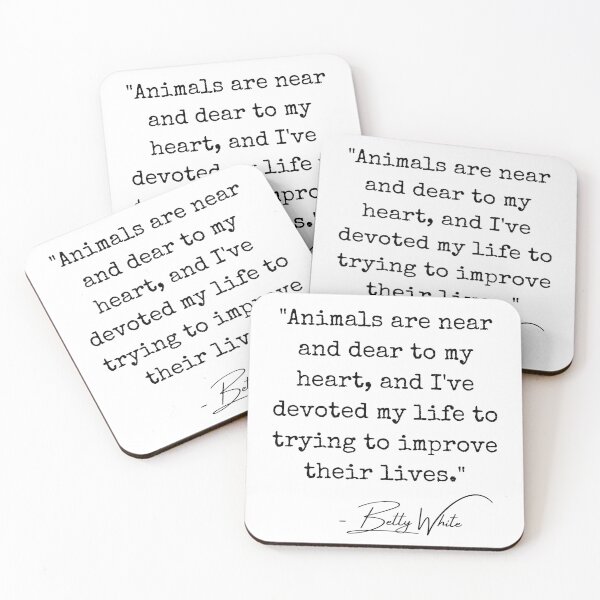 "Animals are near
and dear to my
heart, and I've
devoted my life
"Animals are near
and dear to my
heart, and I've
devoted my life to
trying to improve
their lives."
"Animals are near
and dear to my
heart, and I've
devoted my life to
trying to improve
their
"Animals are near
and dear to my
heart, and I've
devoted my life to
trying to improve
their lives."
- Betty White